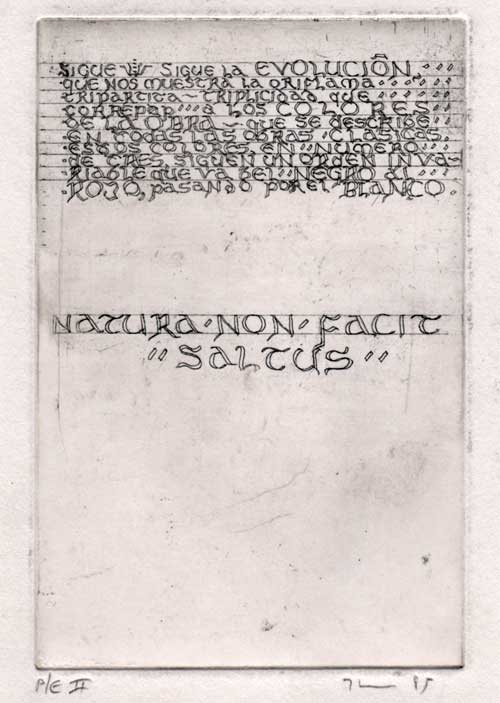 SIGUE SIGUE LA EVOLUCIÓN
QUE NOS MUESTRA LA ORIFLAMA
TRIPARTITA - TRIPLICIDAD QUE
A LOS COLORES
DE LA OBRA - QUE SE DESCRIBE
EN TODAS LAS OBRAS CLASICAS.
ESTOS COLORES, EN NUMERO
DE TRES, SIGUEN UN ORDEN INVA
RIABLE QUE VA DEL "NEGRO AL
ROJO, PASANDO POR EL BLANCO.
NATURA·NON·FACIT
"SALTUS"
P/E II
95